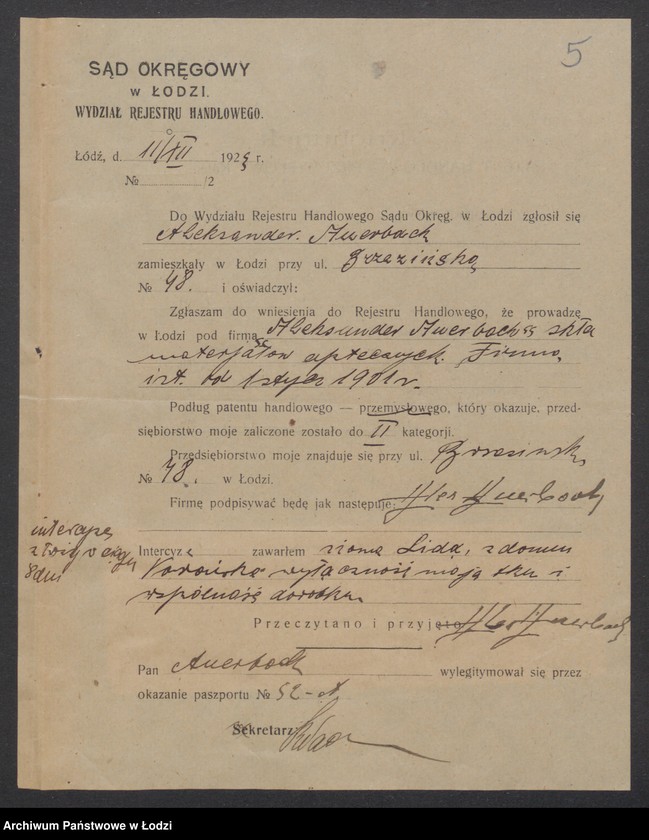 5
SĄD OKRĘGOWY
w ŁODZI.
WYDZIAŁ REJESTRU HANDLOWEGO.
Łódź, d. 11/XII 192 r.
№ /2
Do Wydziału Rejestru Handlowego Sądu Okręg. w Łodzi zgłosił się
Aleksander Auerbach
zamieszkały w Łodzi przy ul. Brzezińską
№ 48. i oświadczył:
Zgłaszam do wniesienia do Rejestru Handlowego, że prowadzę
w Łodzi pod firmą Aleksander Auerbach skła
materjałów aptecznych. Firma
ist. od 1 stycz 1901 r.
Podług patentu handlowego — przemysłowego, który okazuje, przed-
siębiorstwo moje zaliczone zostało do II kategorji.
Przedsiębiorstwo moje znajduje się przy ul. Brzezińsk
№ 48. w Łodzi.
Firmę podpisywać będę jak następuje: Auerbach
intercyzę
8 dni
Intercyz zawarłem z żoną Lidą, z domu
wyłączność mają tku i
wspólność dorobku.
Przeczytano i przyjęto Auerbach
Pan Auerbach wylegitymował się przez
okazanie paszportu № 52
Sekretarz
Archiwum Państwowe w Łodzi